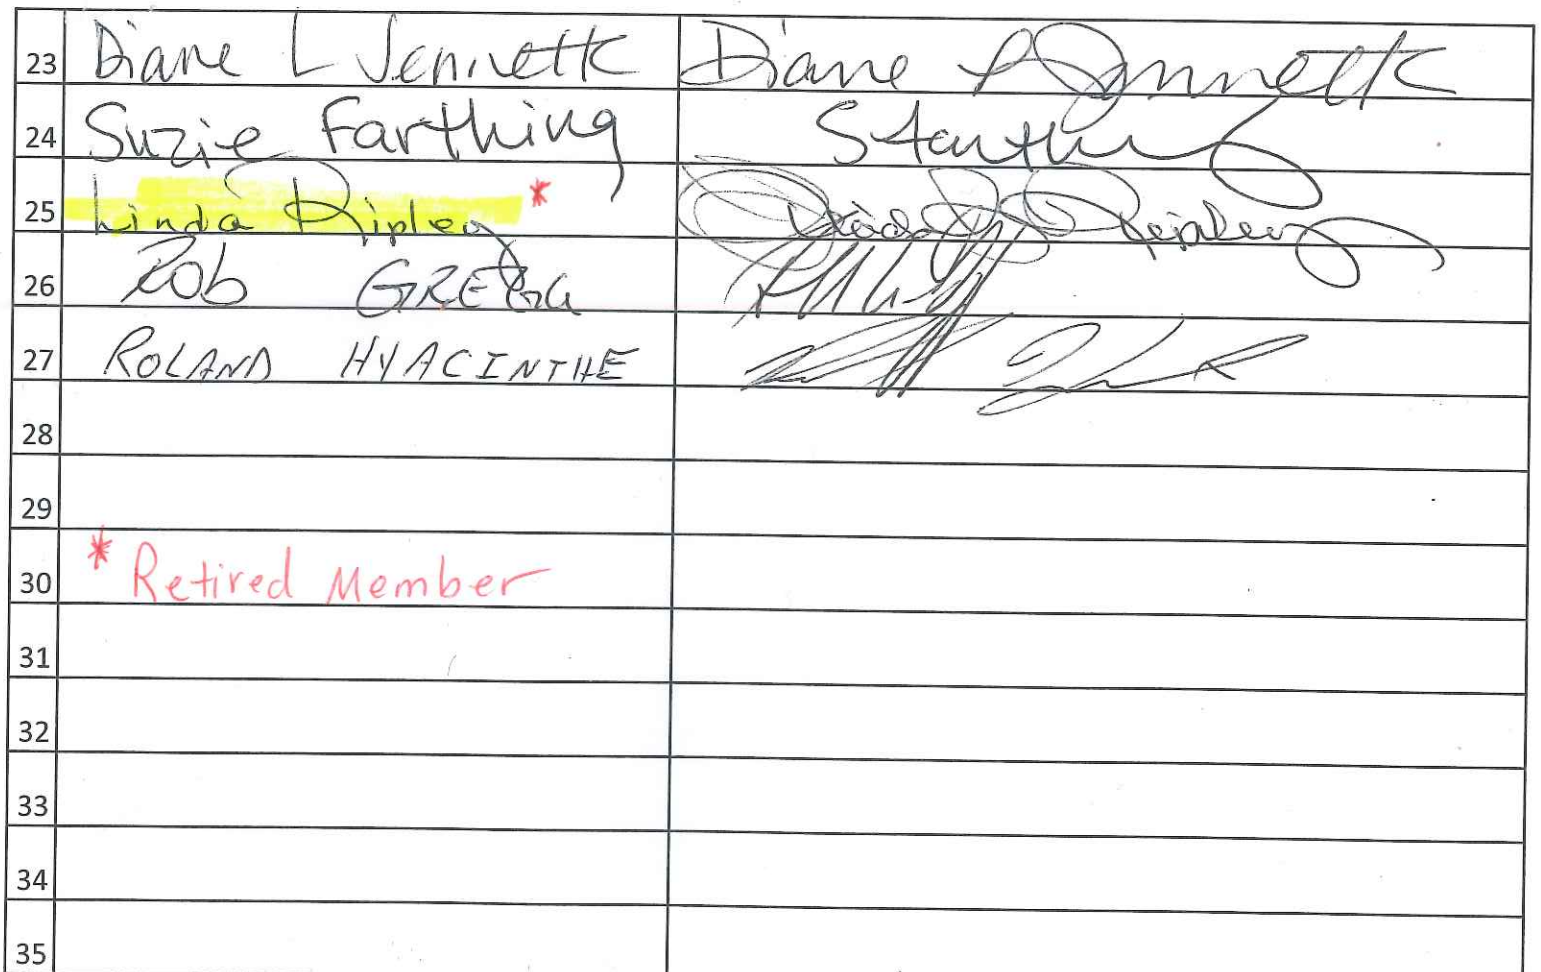 23 Diane L Jennette Diane L Jennette
24 Suzie Farthing SFarthing
25 Linda Ripley * Linda J Ripley
26 Rob GREGG
27 ROLAND HYACINTHE
28
29
30 * Retired Member
31
32
33
34
35